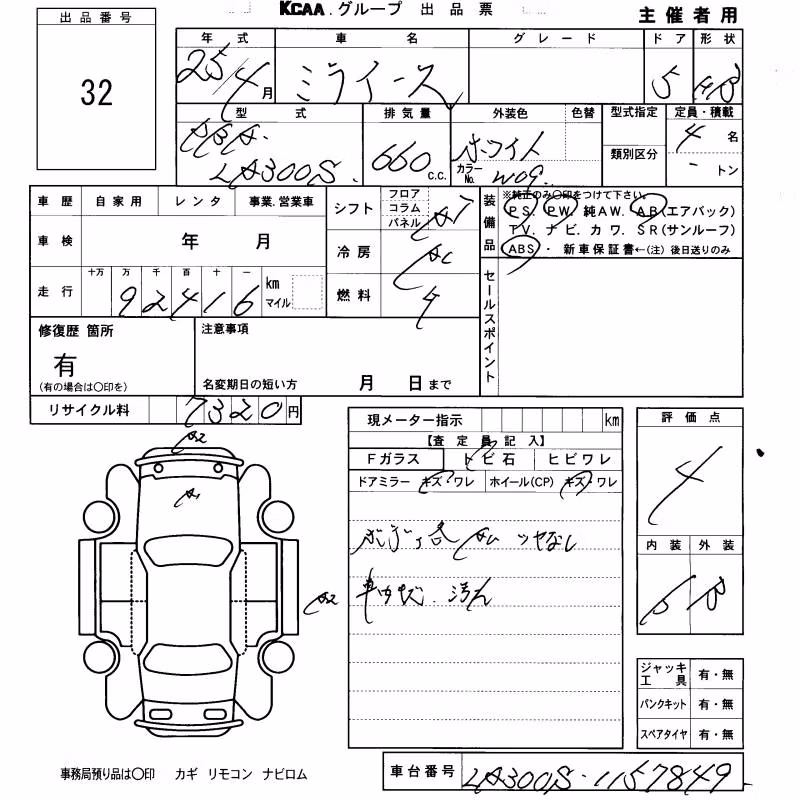 KCAA.グループ 出品票
主催者用
出品番号
32
年式 車名 グレード ドア 形状
25/4月 ミライース 5 HB
型式 排気量 外装色 色替 型式指定 定員・積載
DBA- LA300S 660 C.C. ホワイト カラーNo. W09 類別区分 4名 - トン
車歴 自家用 レンタ 事業.営業車
シフト フロア コラム パネル AT
装備品 ※純正のみ〇印をつけて下さい。
PS. PW. 純AW. AB(エアバック)
TV. ナビ. カワ. SR(サンルーフ)
ABS・ 新車保証書←(注) 後日送りのみ
車検 年 月
冷房 AC
走行 十万 万 千 百 十 一 km マイル
92416
燃料 ガ
セールスポイント
修復歴 箇所
有
(有の場合は〇印を)
注意事項
名変期日の短い方 月 日まで
リサイクル料 7320円
現メーター指示 km
【査定員記入】
Fガラス トビ石 ヒビワレ
ドアミラー キズ・ワレ ホイール(CP) キズ・ワレ
ツヤなし
評価点
4
内装 外装
B
A2
A1
A2
ジャッキ工具 有・無
パンクキット 有・無
スペアタイヤ 有・無
事務局預り品は〇印 カギ リモコン ナビロム
車台番号 LA300S-1157849